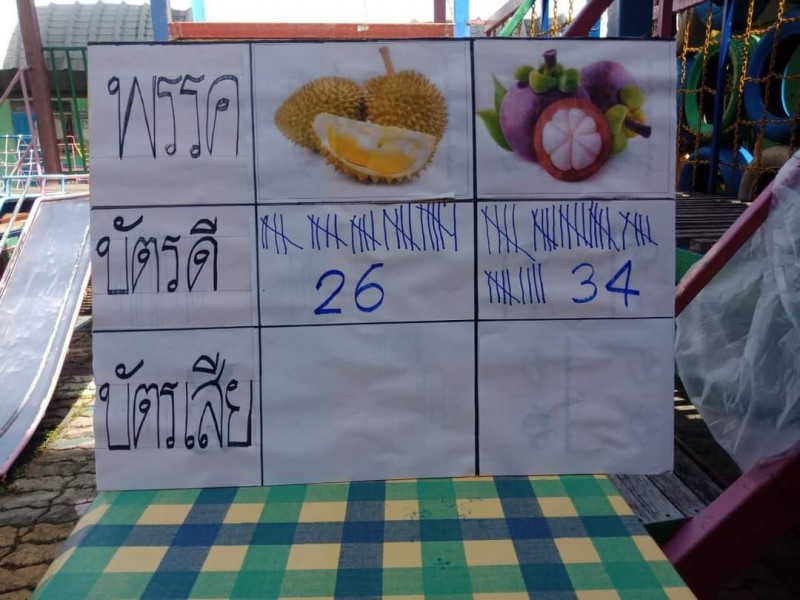 พรรค
บัตรดี
26
34
บัตรเสีย